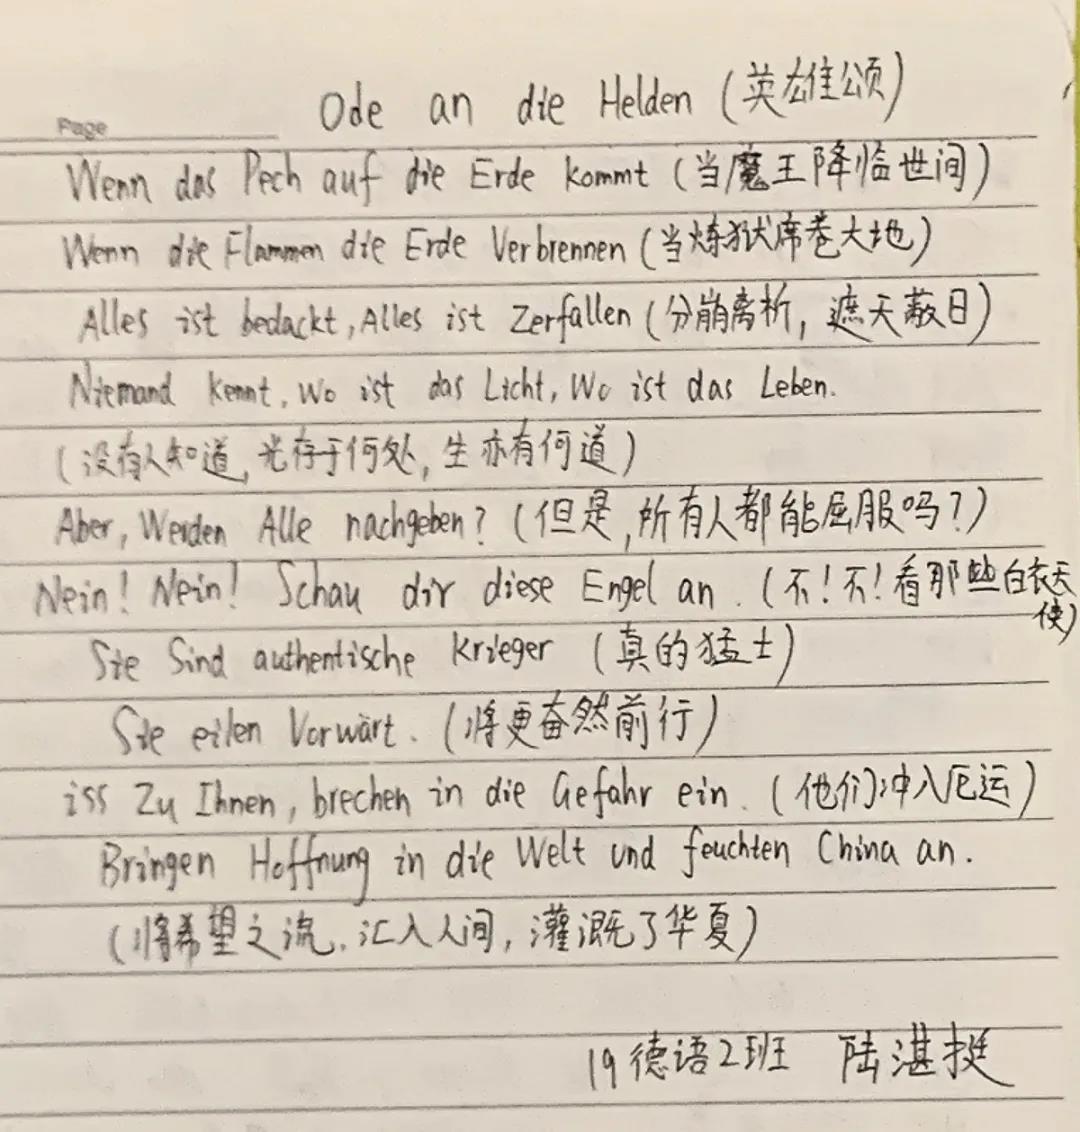 Ode an die Helden (英雄颂)
Page
Wenn das Pech auf die Erde kommt (当魔王降临世间)
Wenn die Flammen die Erde Verbrennen (当炼狱席卷大地)
Alles ist bedackt, Alles ist Zerfallen (分崩离析, 遮天蔽日)
Niemand kennt, wo ist das Licht, Wo ist das Leben.
(没有人知道, 光存于何处, 生亦有何道)
Aber, Werden Alle nachgeben? (但是, 所有人都能屈服吗?)
Nein! Nein! Schau dir diese Engel an. (不! 不! 看那些白衣天使)
Sie Sind authentische Krieger (真的猛士)
Sie eilen Vorwärt. (将更奋然前行)
iss Zu Ihnen, brechen in die Gefahr ein. (他们冲入厄运)
Bringen Hoffnung in die Welt und feuchten China an.
(将希望之流, 汇入人间, 灌溉了华夏)
19德语2班 陆湛挺